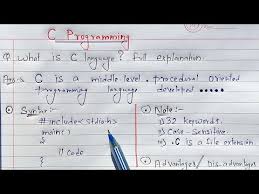 C Programming
Q. What is C language? Full explanation.
Ans:- C is a middle level. procedural oriented
developed .....
Syntax:-
# include<stdio.h>
main()
{
// code
Note:-
1) 32 keywords.
ii) Case-Sensitive.
iii) .C is a file extension.
Advantages/Dis-advantages